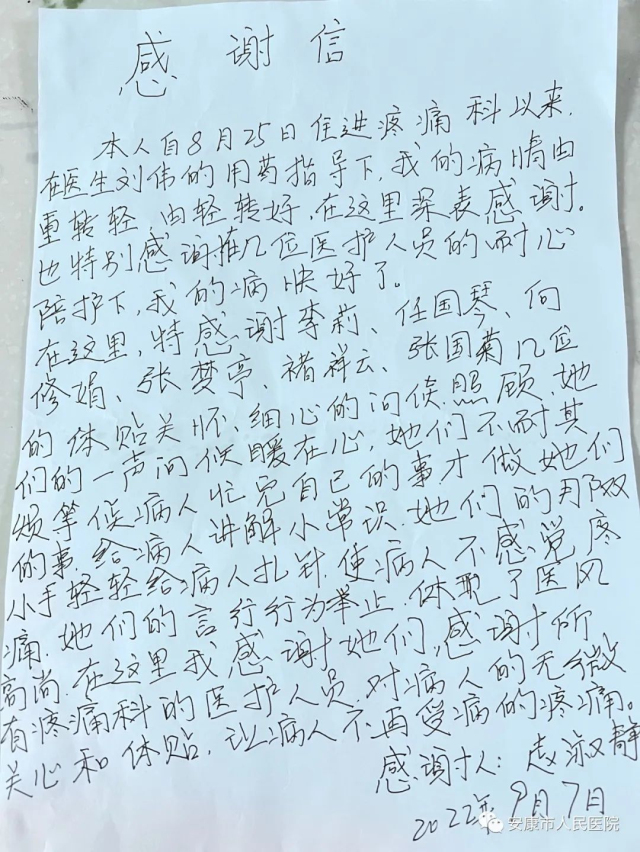 感谢信
本人自8月25日住进疼痛科以来,
在医生刘伟的用药指导下,我的病情由
重转轻,由轻转好,在这里深表感谢。
也特别感谢在几位医护人员的耐心
陪护下,我的病快好了。
在这里,特感谢李莉、任国琴、向
修娟、张梦亭、褚祥云、张国菊几位
的体贴关怀、细心的问候照顾,她
们的一声问候暖在心,她们不耐其
烦等候病人忙完自己的事才做她们
的事,给病人讲解小常识,她们的用双
小手轻轻给病人扎针,使病人不感觉疼
痛,她们的言行行为举止,体现了医风
高尚,在这里我感谢她们,感谢所
有疼痛科的医护人员,对病人的无微
关心和体贴,让病人不再受病的疼痛。
感谢人:赵淑静
2022年9月7日
安康市人民医院